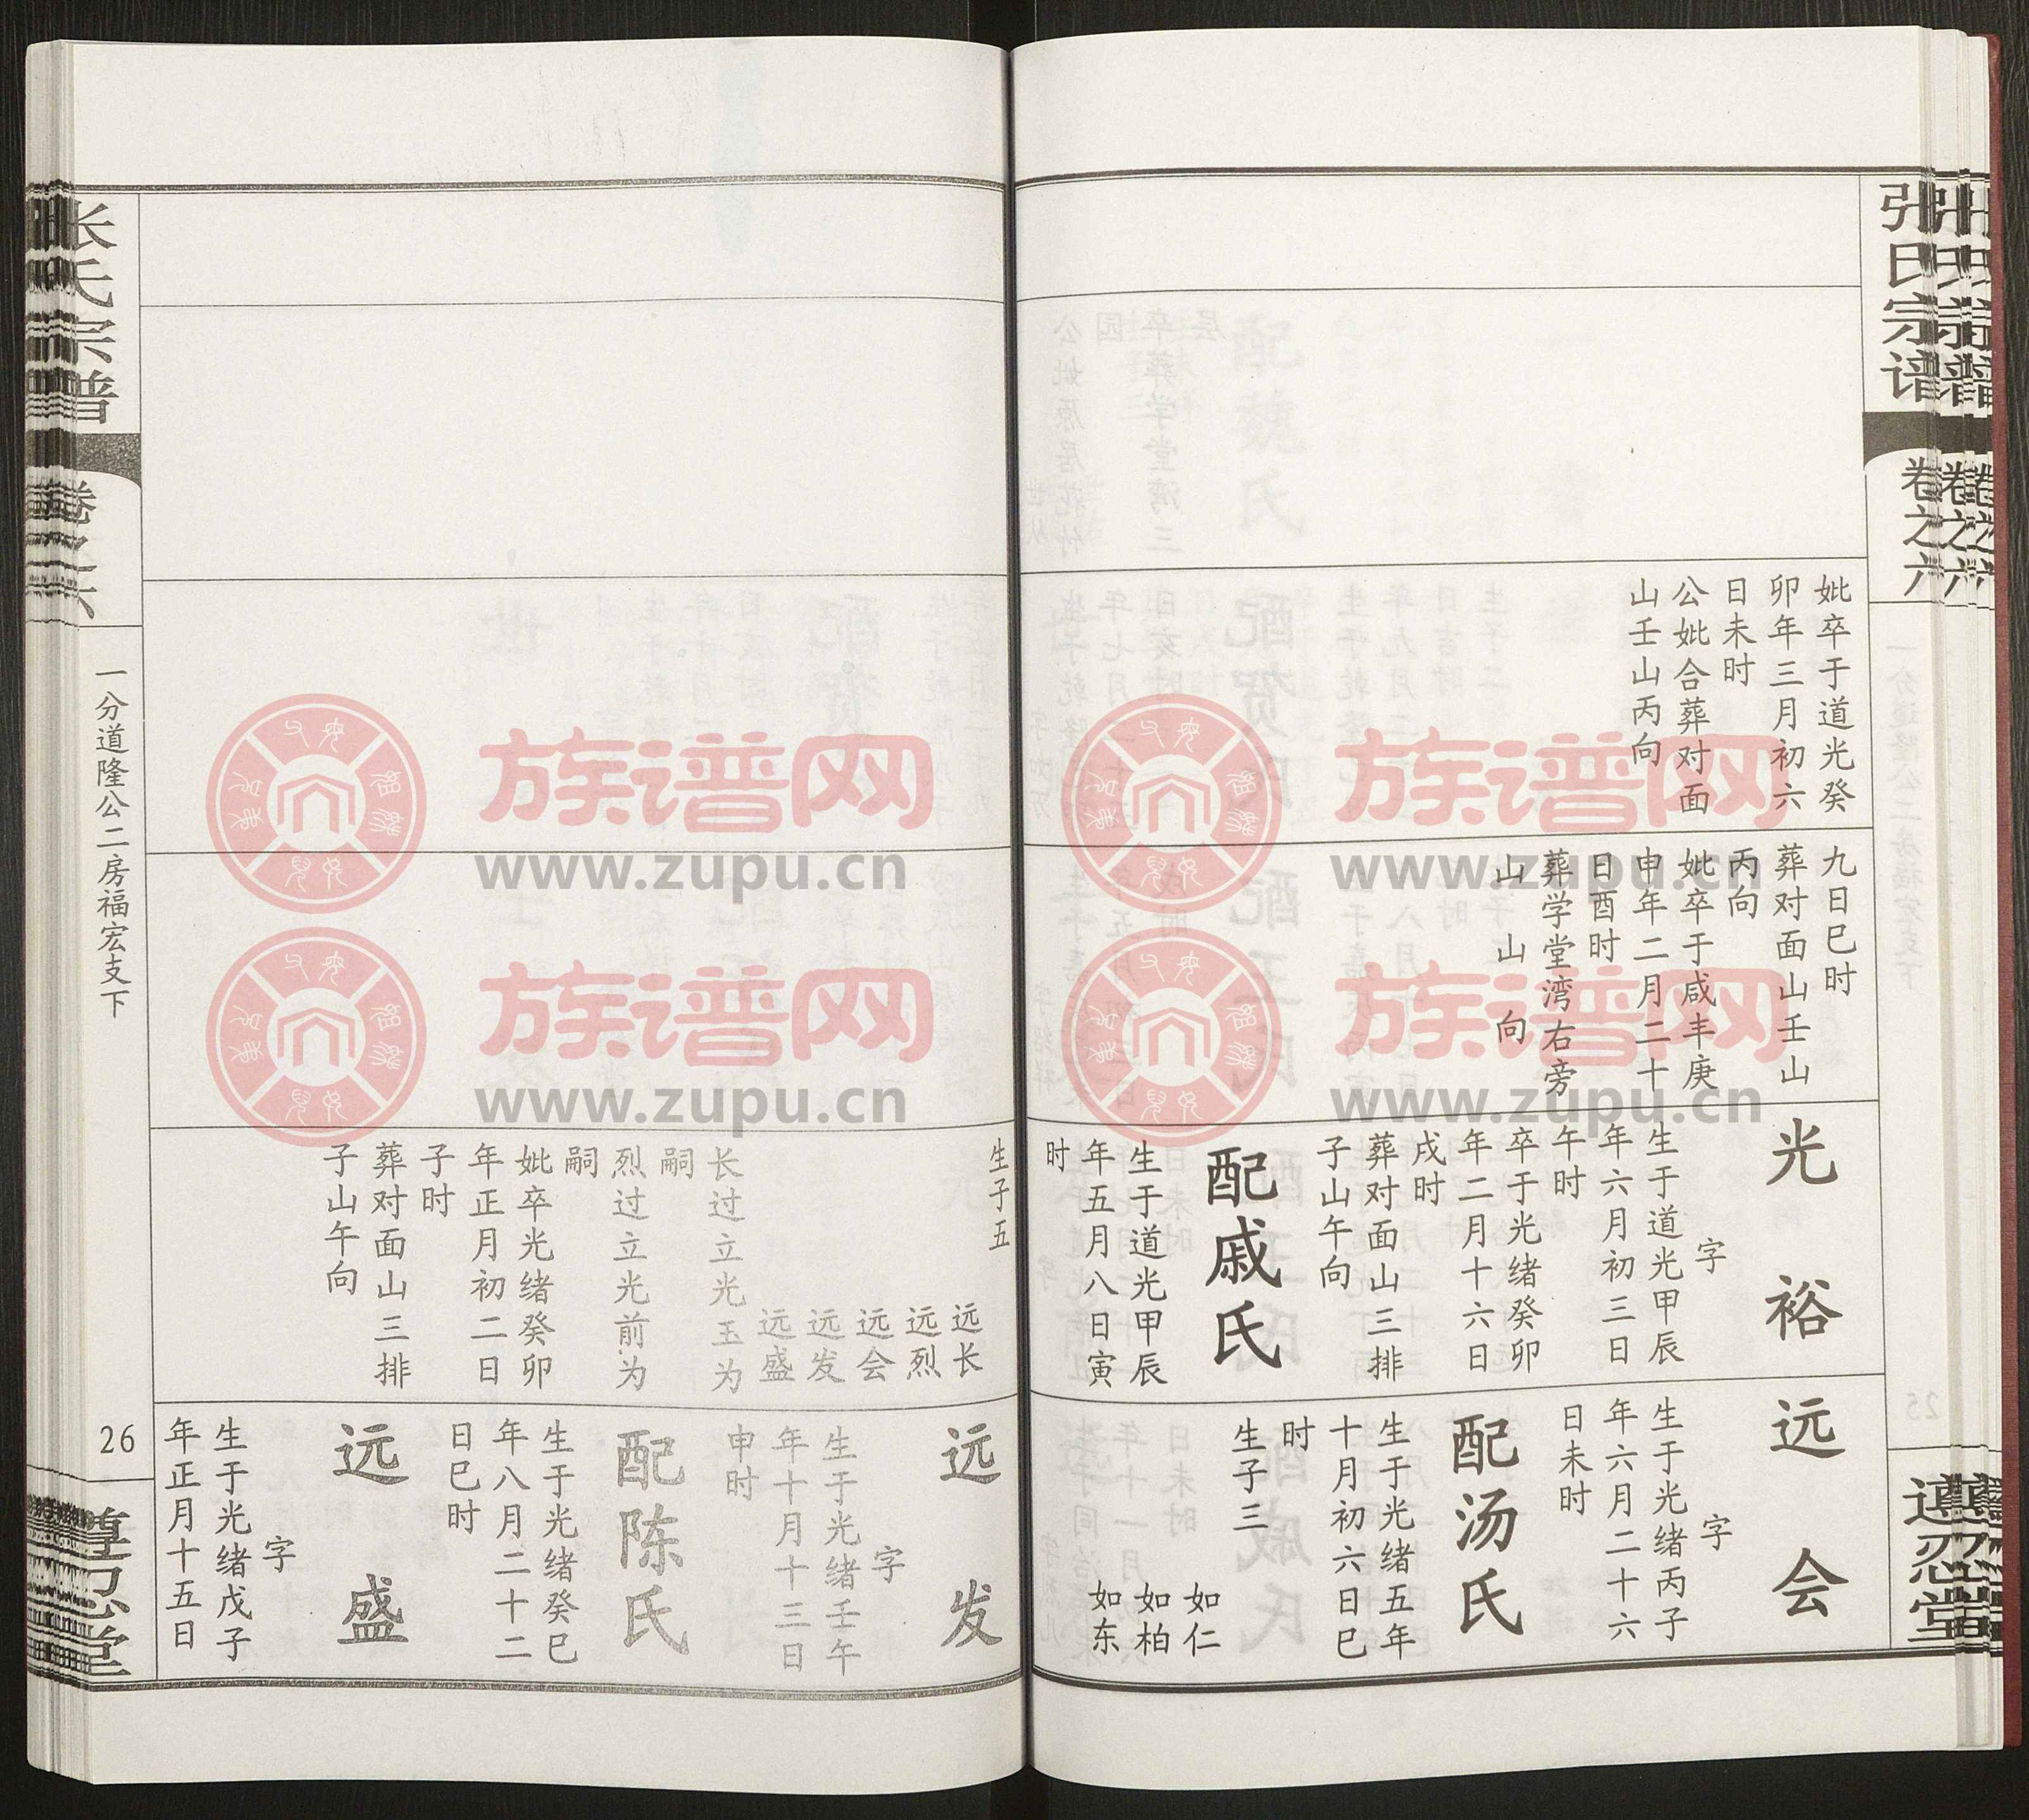 张氏宗谱
卷之六
遵忍堂
妣卒于道光癸
卯年三月初六
日未时
公妣合葬对面
山壬山丙向
九日巳时
葬对面山壬山
丙向
妣卒于咸丰庚
申年二月二十
日酉时
葬学堂湾右旁
山 山 向
光裕
字
生于道光甲辰
年六月初三日
午时
卒于光绪癸卯
年二月十六日
戌时
葬对面山三排
子山午向
配戚氏
生于道光甲辰
年五月八日寅
时
远会
字
生于光绪丙子
年六月二十六
日未时
配汤氏
生于光绪五年
十月初六日巳
时
生子三
如仁
如柏
如东
生子五
远长
远烈
远会
远发
远盛
长过立光玉为
嗣
烈过立光前为
嗣
妣卒光绪癸卯
年正月初二日
子时
葬对面山三排
子山午向
远发
字
生于光绪壬午
年十月十三日
申时
配陈氏
生于光绪癸巳
年八月二十二
日巳时
远盛
字
生于光绪戊子
年正月十五日
张氏宗谱
卷之六
一分道隆公二房福宏支下
26
遵忍堂
族谱网
www.zupu.cn
族谱网
www.zupu.cn
族谱网
www.zupu.cn
族谱网
www.zupu.cn